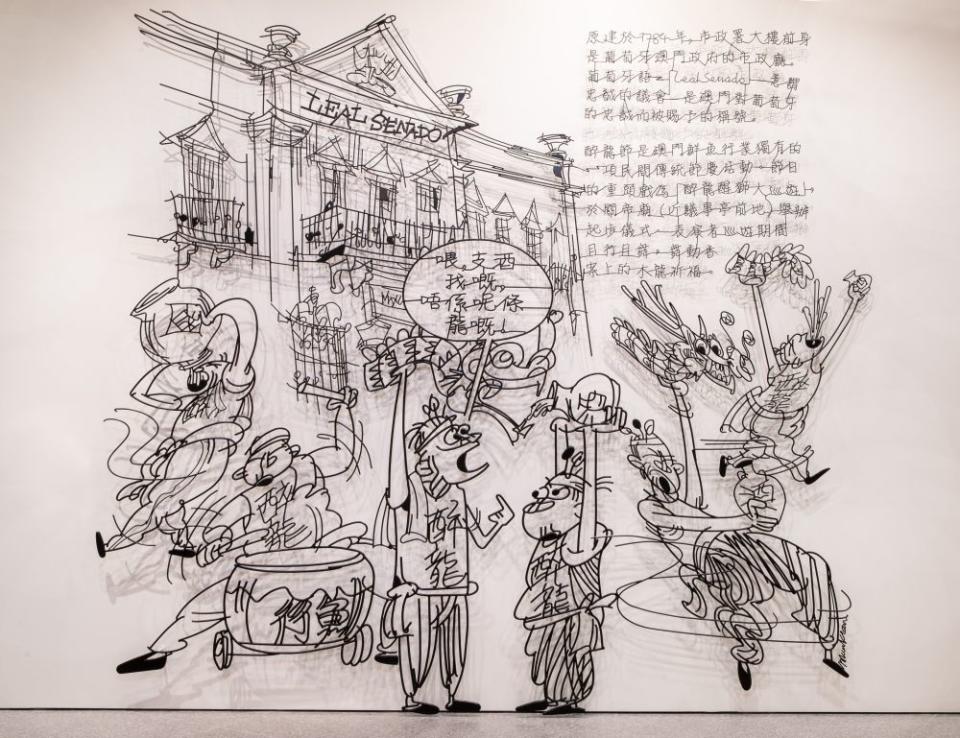 LEAL SENADO
原建於1784年,市政署大樓前身
是葡萄牙澳門政府的市政廳。
葡萄牙語「Leal Senado」意即
忠誠的議會,是澳門對葡萄牙
的忠誠而被賜予的稱號。
醉龍節是澳門鮮魚行業獨有的
一項民間傳統節慶活動,節日
的重頭戲為「醉龍醒獅大巡遊」,
於關帝廟(近議事亭前地)舉辦
起步儀式,表演者巡遊期間
且行且舞,舞動香
案上的木龍祈福。
喂,支酒
我嘅,
唔係呢條
龍嘅!
醉龍
醉龍
醉龍
醉龍
酒
行魚